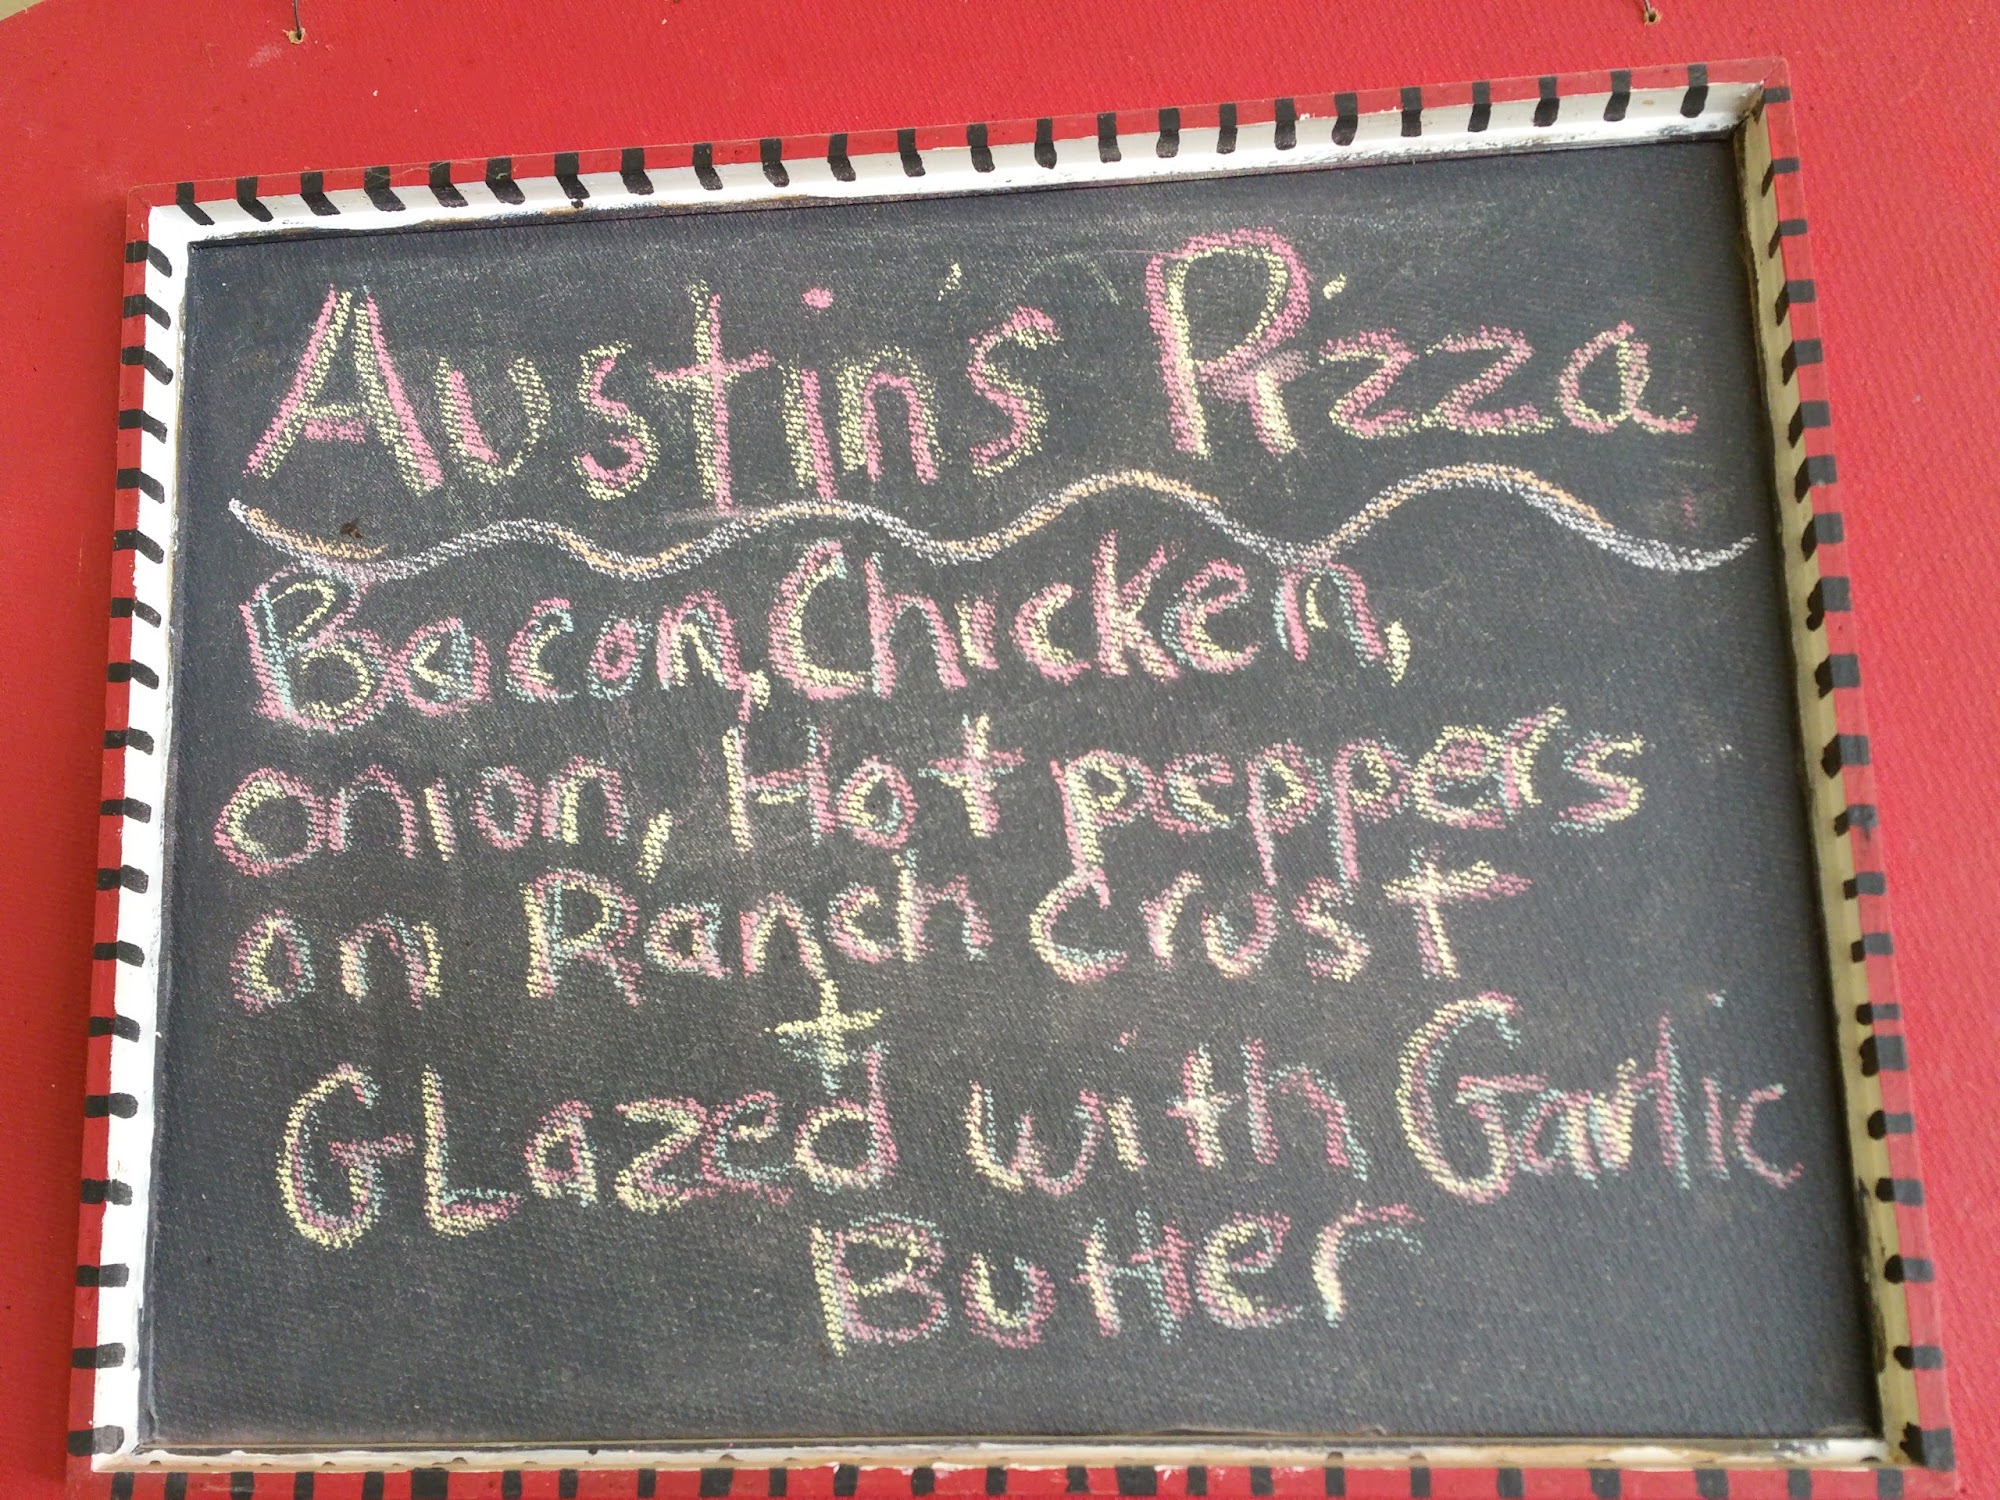 Austin's Pizza
Bacon, Chicken,
onion, Hot peppers
on Ranch Crust
+
GLazed with Garlic
Butter